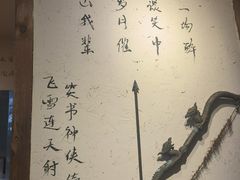 一场醉
谈笑中
岁月催
出我辈
飞雪连天射
笑书神侠倚